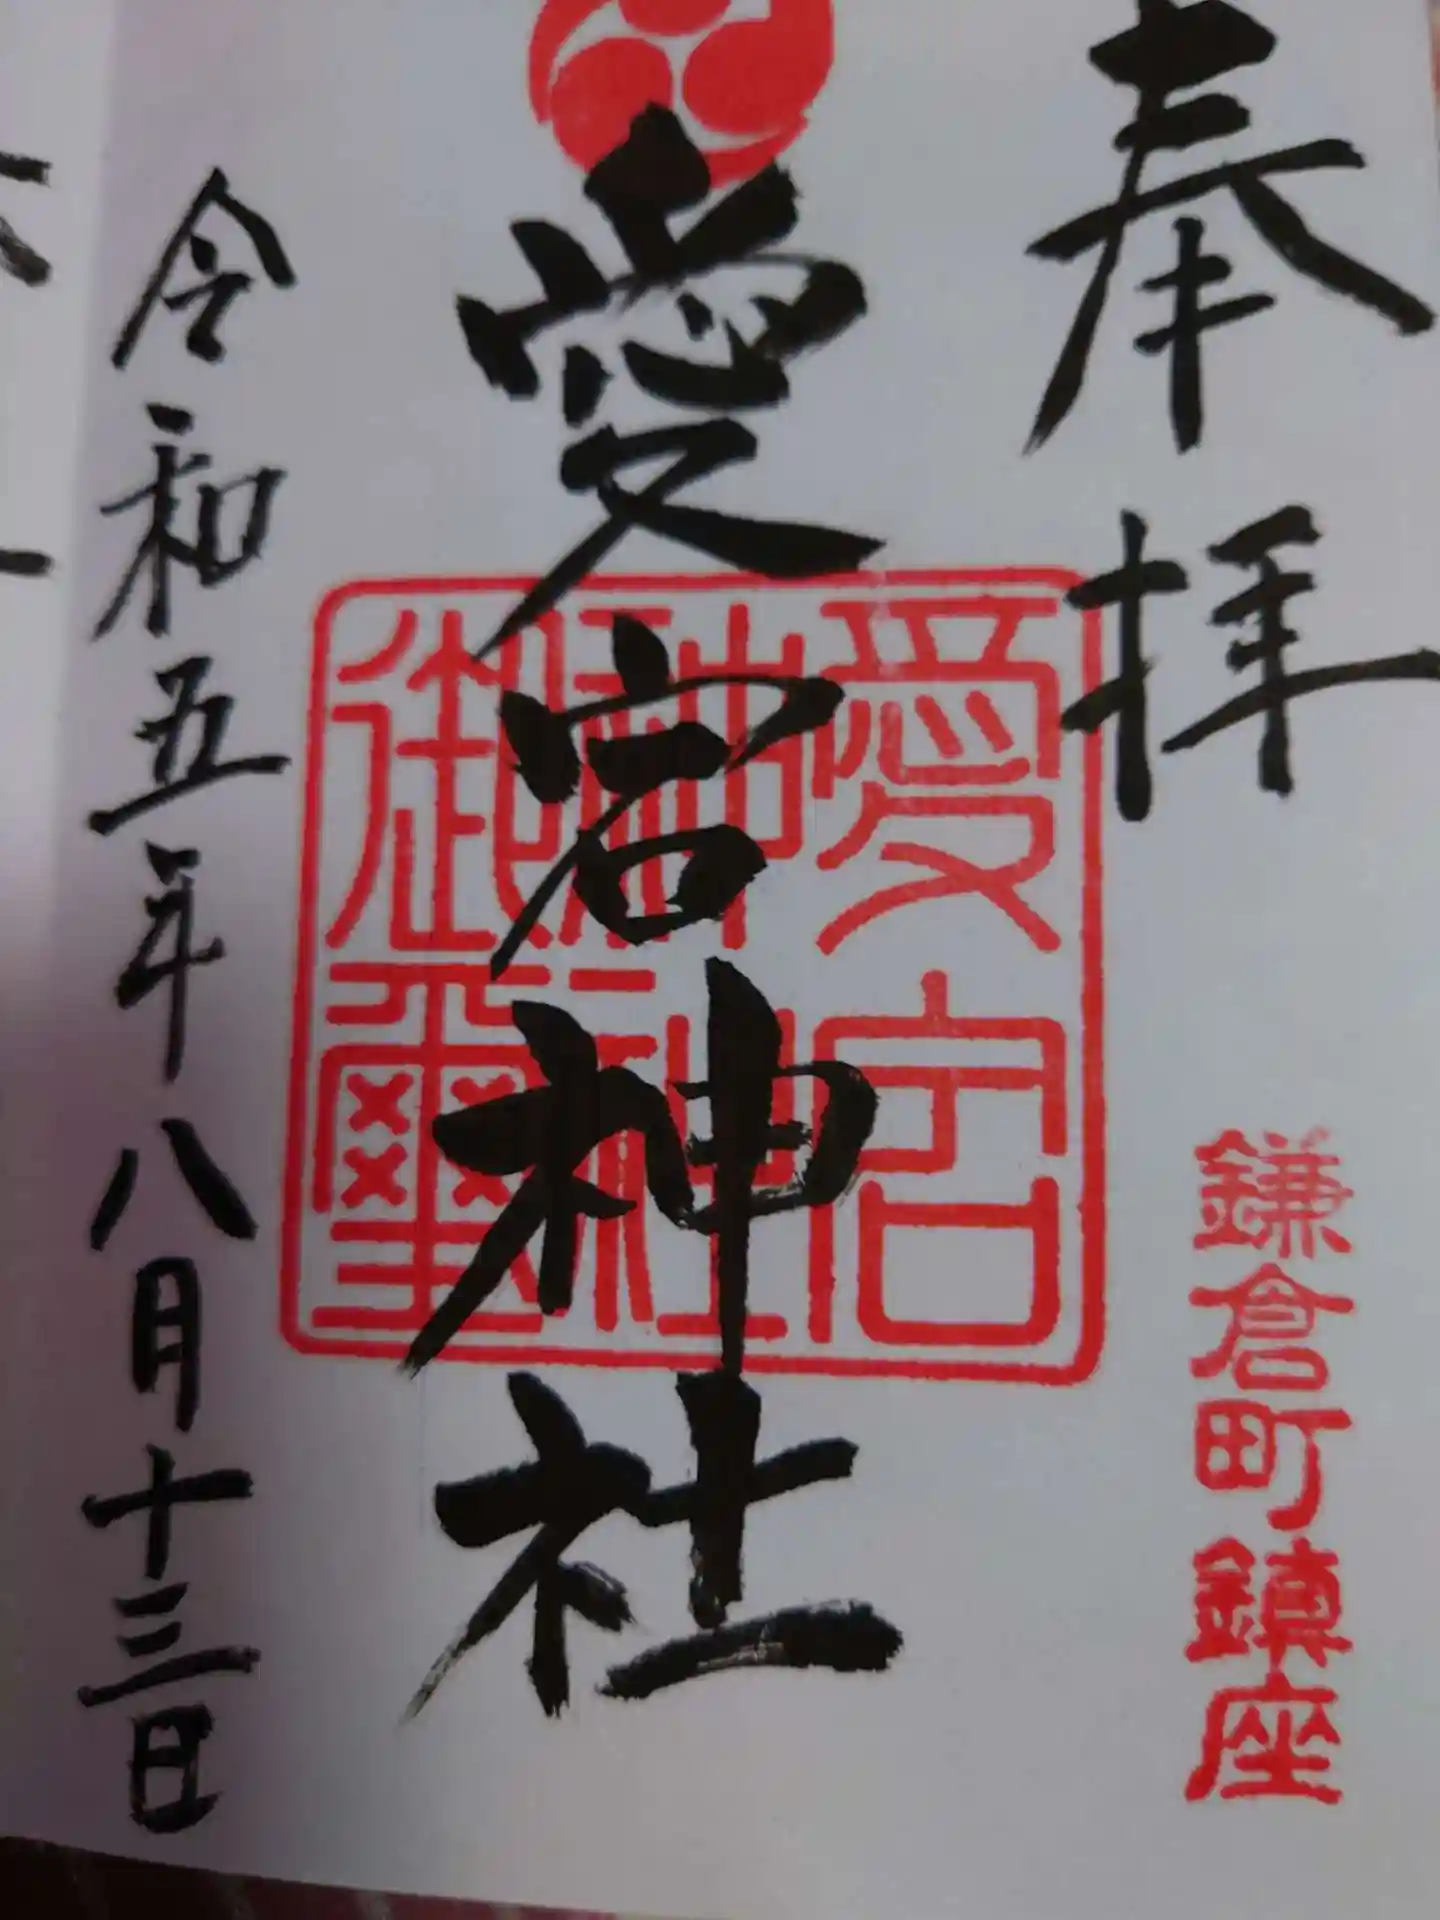 奉拝
鎌倉町鎮座
愛宕神社
愛宕神社御璽
令和五年八月十三日